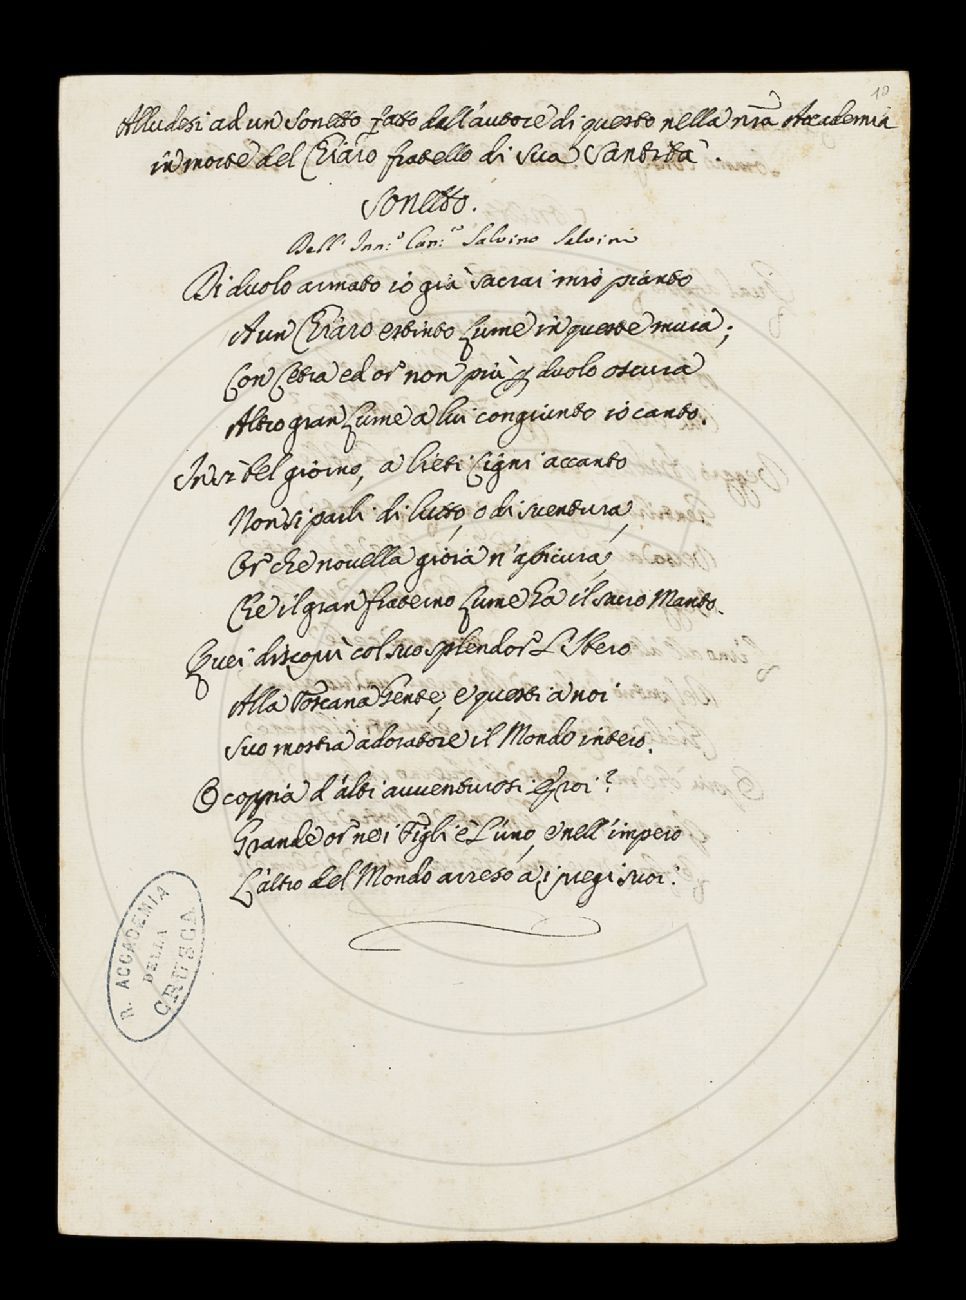 10
Alludesi ad un Sonetto fatto dall'autore di questo nella nrã Accademia
in morte del Chiaro fratello di Sua Santità.
Sonetto.
Dell' Inn:º Can:co Salvino Salvini
Di duolo armato io già sacrai mio pianto
A un Chiaro estinto Lume in queste mura;
Con Cetra ed or non più p duolo oscura
Altro gran Lume a lui congiunto io canto.
In sì bel giorno, a lieti Cigni accanto
Non si parli di lutto, o di sventura,
Or che novella gioia n'assicura,
Che il gran fraterno Lume ha il sacro Manto.
Quei discoprì col suo splendor L'Ibero
Alla Toscana Gente, e questi a noi
Suo mostra adoratore il Mondo intero.
O coppia d'alti avventurosi Eroi!
Grande or nei Figli è L'uno, e nell'impero
L'altro del Mondo atteso a i pregi suoi.
R. ACCADEMIA
DELLA
CRUSCA